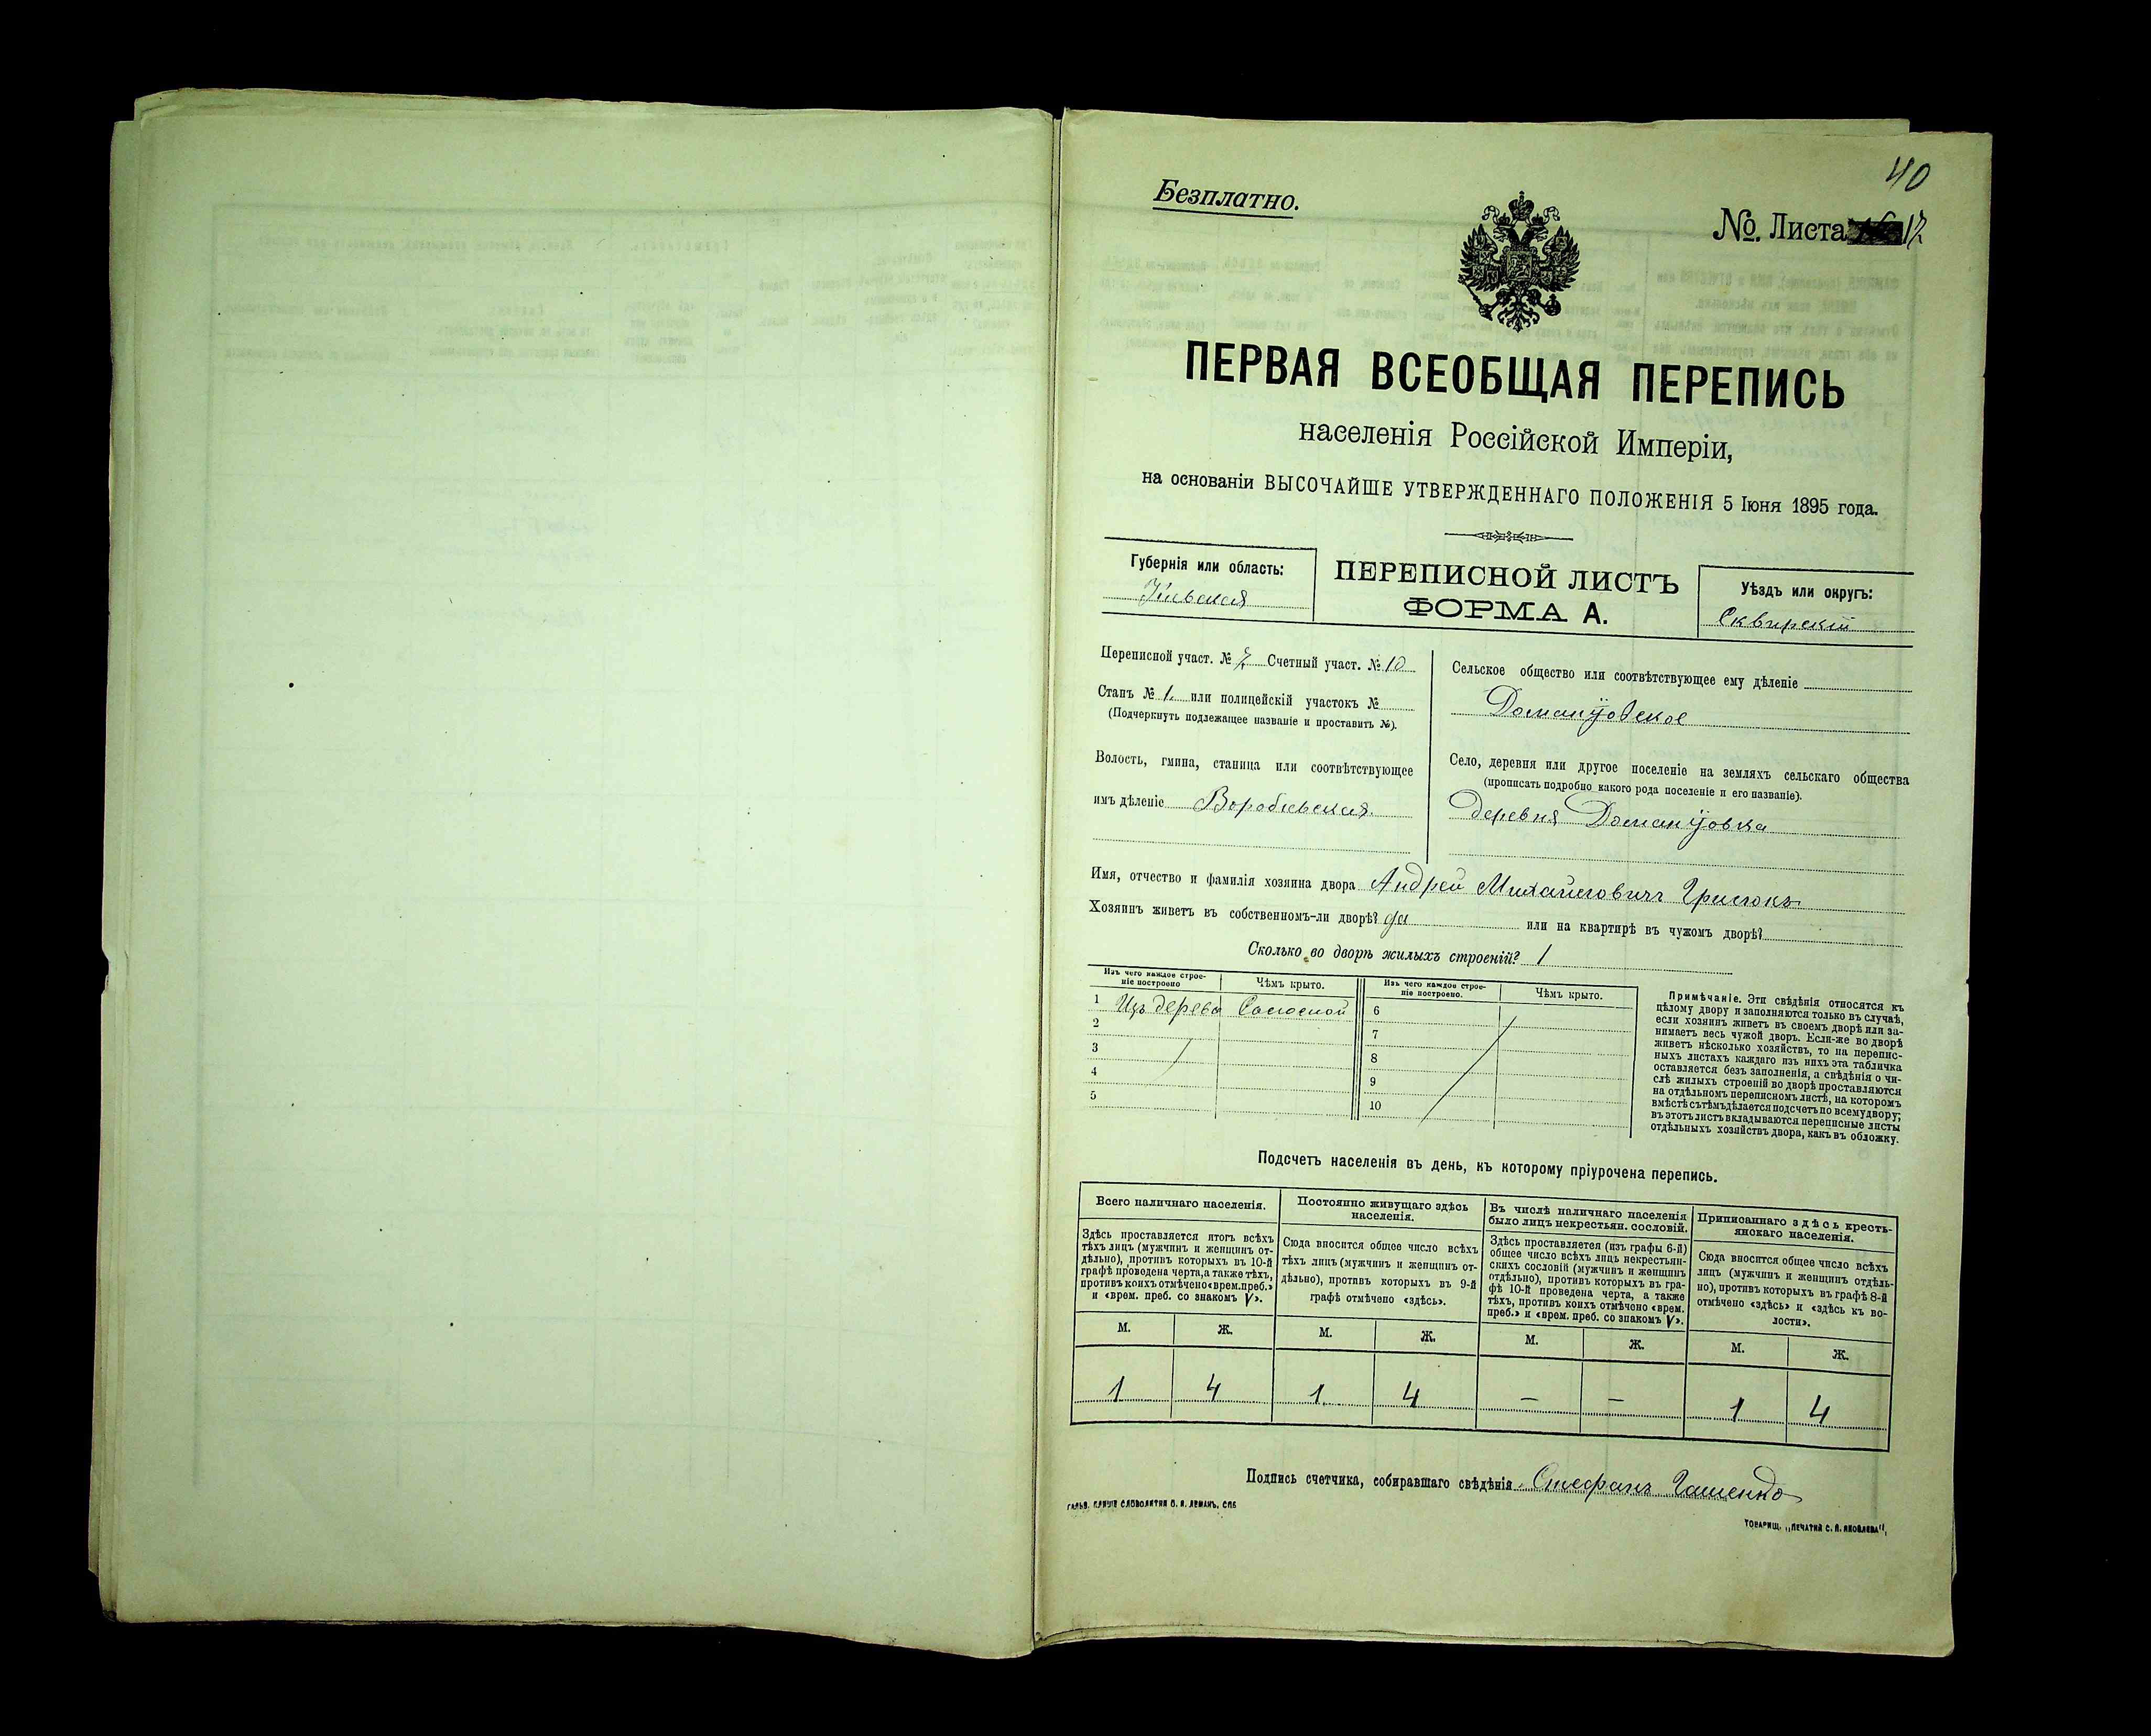 40
Безплатно.
№. Листа 12
ПЕРВАЯ ВСЕОБЩАЯ ПЕРЕПИСЬ
населенія Россійской Имперіи,
на основаніи ВЫСОЧАЙШЕ УТВЕРЖДЕННАГО ПОЛОЖЕНІЯ 5 Іюня 1895 года.
Губернія или область:
Кіевская
ПЕРЕПИСНОЙ ЛИСТЪ
ФОРМА А.
Уѣздъ или округъ:
Сквирскій
Переписной участ. № 7 Счетный участ. № 10
Станъ № 1 или полицейскій участокъ №
(Подчеркнуть подлежащее названіе и проставить №).
Волость, гмина, станица или соотвѣтствующее
имъ дѣленіе Воробіевская
Сельское общество или соотвѣтствующее ему дѣленіе
Доманцовское
Село, деревня или другое поселеніе на земляхъ сельскаго общества
(прописать подробно какого рода поселеніе и его названіе).
деревня Доманцовка
Имя, отчество и фамилія хозяина двора Андрей Михайловичъ
Хозяинъ живетъ въ собственномъ-ли дворѣ? да или на квартирѣ въ чужомъ дворѣ?
Сколько во дворѣ жилыхъ строеній? 1
Изъ чего каждое строе-
ніе построено
Чѣмъ крыто.
1 Изъ дерева Соломой
2
3
4
5
Изъ чего каждое строе-
ніе построено.
Чѣмъ крыто.
6
7
8
9
10
Примѣчаніе. Эти свѣдѣнія относятся къ
цѣлому двору и заполняются только въ случаѣ,
если хозяинъ живетъ въ своемъ дворѣ или за-
нимаетъ весь чужой дворъ. Если-же во дворѣ
живетъ нѣсколько хозяйствъ, то на перепис-
ныхъ листахъ каждаго изъ нихъ эта табличка
оставляется безъ заполненія, а свѣдѣнія о чи-
слѣ жилыхъ строеній во дворѣ проставляются
на отдѣльномъ переписномъ листѣ, на которомъ
вмѣстѣ съ тѣмъ дѣлается подсчетъ по всему двору;
въ этотъ листъ вкладываются переписные листы
отдѣльныхъ хозяйствъ двора, какъ въ обложку.
Подсчетъ населенія въ день, къ которому пріурочена перепись.
Всего наличнаго населенія.
Здѣсь проставляется итогъ всѣхъ
тѣхъ лицъ (мужчинъ и женщинъ от-
дѣльно), противъ которыхъ въ 10-й
графѣ проведена черта, а также тѣхъ,
противъ коихъ отмѣчено «врем. преб.»
и «врем. преб. со знакомъ V».
Постоянно живущаго здѣсь
населенія.
Сюда вносится общее число всѣхъ
тѣхъ лицъ (мужчинъ и женщинъ от-
дѣльно), противъ которыхъ въ 9-й
графѣ отмѣчено «здѣсь».
Въ числѣ наличнаго населенія
было лицъ некрестьян. сословій.
Здѣсь проставляется (изъ графы 6-й)
общее число всѣхъ лицъ некрестьян-
скихъ сословій (мужчинъ и женщинъ
отдѣльно), противъ которыхъ въ гра-
фѣ 10-й проведена черта, а также
тѣхъ, противъ коихъ отмѣчено «врем.
преб.» и «врем. преб. со знакомъ V».
Приписаннаго здѣсь кресть-
янскаго населенія.
Сюда вносится общее число всѣхъ
лицъ (мужчинъ и женщинъ отдѣль-
но), противъ которыхъ въ графѣ 8-й
отмѣчено «здѣсь» и «здѣсь къ во-
лости».
М. Ж. М. Ж. М. Ж. М. Ж.
1 4 1 4 — — 1 4
Подпись счетчика, собиравшаго свѣдѣнія Стефанъ
ГАЛЬВ. КЛИШЕ СЛОВОЛИТНИ О. И. ЛЕМАНЪ, СПБ
ТОВАРИЩ. „ПЕЧАТНЯ С. П. ЯКОВЛЕВА“,